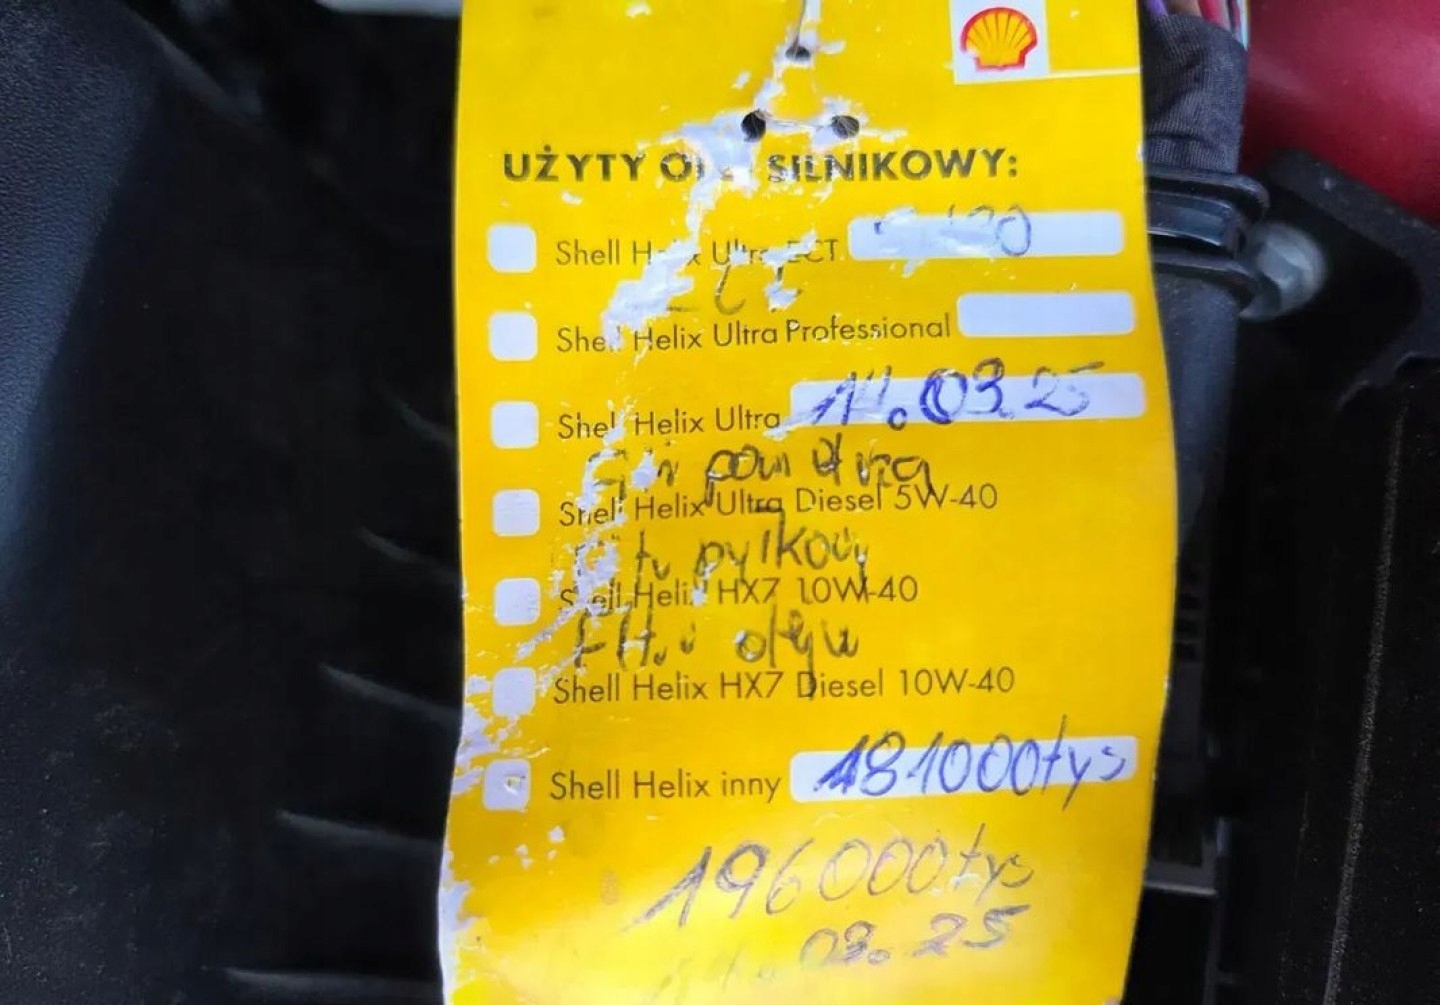 UŻYTY SILNIKOWY:
Shell Ultra ECT
Shell Helix Ultra Professional
Shell Helix Ultra 14.03.25
powietrza
Shell Helix Ultra Diesel 5W-40
pyłkowy
Shell Helix HX7 10W-40
Filtr oleju
Shell Helix HX7 Diesel 10W-40
Shell Helix inny 181000tys
196000tys
03.25